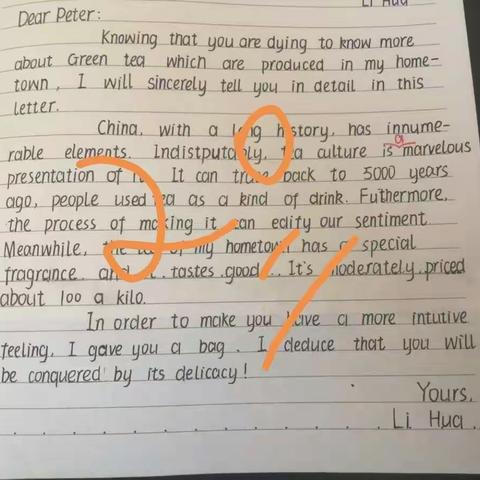 Li Hua
Dear Peter:
Knowing that you are dying to know more
about Green tea which are produced in my home-
town, I will sincerely tell you in detail in this
letter.
China, with a long history, has innume-
a
rable elements. Indistputably, tea culture is marvelous
presentation of It can trace back to 5000 years
ago, people used tea as a kind of drink. Futhermore,
the process of making it can edify our sentiment
Meanwhile, the of my hometown has a special
fragrance and it tastes good. It's moderately priced
about 100 a kilo.
In order to make you have a more intutive
feeling, I gave you a bag. I deduce that you will
be conquered by its delicacy!
Yours,
Li Hua.